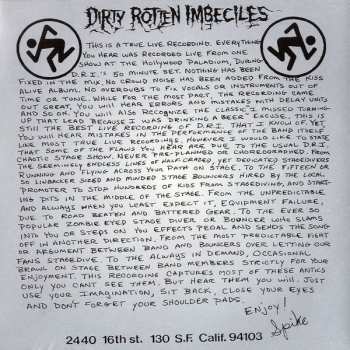 DIRTY ROTTEN IMBECILES
THIS IS A TRUE LIVE RECORDING. EVERYTHING
YOU HEAR WAS RECORDED LIVE FROM ONE
SHOW AT THE HOLLYWOOD PALADIUM, DURING
D.R.I.'S 50 MINUTE SET. NOTHING HAS BEEN
FIXED IN THE MIX. NO CROWD NOISE HAS BEEN ADDED FROM THE KISS
ALIVE ALBUM. NO OVERDUBS TO FIX VOCALS OR INSTRUMENTS OUT OF
TIME OR TUNE. WHILE FOR THE MOST PART, THE RECORDING CAME
OUT GREAT, YOU WILL HEAR ERRORS AND MISTAKES WITH DELAY UNITS
AND SO ON. YOU WILL ALSO RECOGNIZE THE CLASSIC I MISSED TURNING
UP THAT LEAD BECAUSE I WAS DRINKING A BEER EXCUSE. THIS IS
STILL THE BEST LIVE RECORDING OF D.R.I. THAT I KNOW OF. YET
YOU WILL HEAR MISTAKES IN THE PERFORMANCE OF THE BAND ITSELF.
LIKE MOST TRUE LIVE RECORDINGS, HOWEVER I WOULD LIKE TO STATE
THAT SOME OF THE FLAWS YOU HEAR ARE DUE TO THE USUAL D.R.I.
CHAOTIC STAGE SHOW. NEVER PRE-PLANNED OR CHOREOGRAPHED. FROM
THE SEEMINGLY ENDLESS LINES OF HALF-CRAZED, YET DEDICATED STAGEDIVERS
RUNNING AND FLYING ACROSS YOUR PATH ON STAGE. TO THE FIFTEEN OR
SO LINBACKER SIZED AND MINDED STAGE BOUNCERS HIRED BY THE LOCAL
PROMOTER TO STOP HUNDREDS OF KIDS FROM STAGEDIVING, AND START-
ING PITS IN THE MIDDLE OF THE STAGE. FROM THE UNPREDICTABLE
AND ALWAYS WHEN YOU LEAST EXPECT IT, EQUIPMENT FAILURE,
DUE TO ROAD BEATEN AND BATTERED GEAR. TO THE EVER SO
POPULAR ZOMBIE EYED STAGE DIVER OR BOUNCER WHO SLAMS
INTO YOU OR STEPS ON YOU EFFECTS PEDAL AND SENDS THE SONG
OFF IN ANOTHER DIRECTION. FROM THE MOST PREDICTABLE FIGHT
OR ARGUMENT BETWEEN BAND AND BOUNCERS OVER LETTING OUR
FANS STAGEDIVE. TO THE ALWAYS IN DEMAND, OCCASIONAL
BRAWL ON STAGE BETWEEN BAND MEMBERS STRICTLY FOR YOUR
ENJOYMENT. THIS RECORDING CAPTURES MOST OF THESE ANTICS
ONLY YOU CANT SEE THEM. BUT HEAR THEM YOU WILL. JUST
USE YOUR IMAGINATION, SIT BACK, CLOSE YOUR EYES
AND DON'T FORGET YOUR SHOULDER PADS.
ENJOY!
Spike
2440 16th st. 130 S.F. Calif. 94103